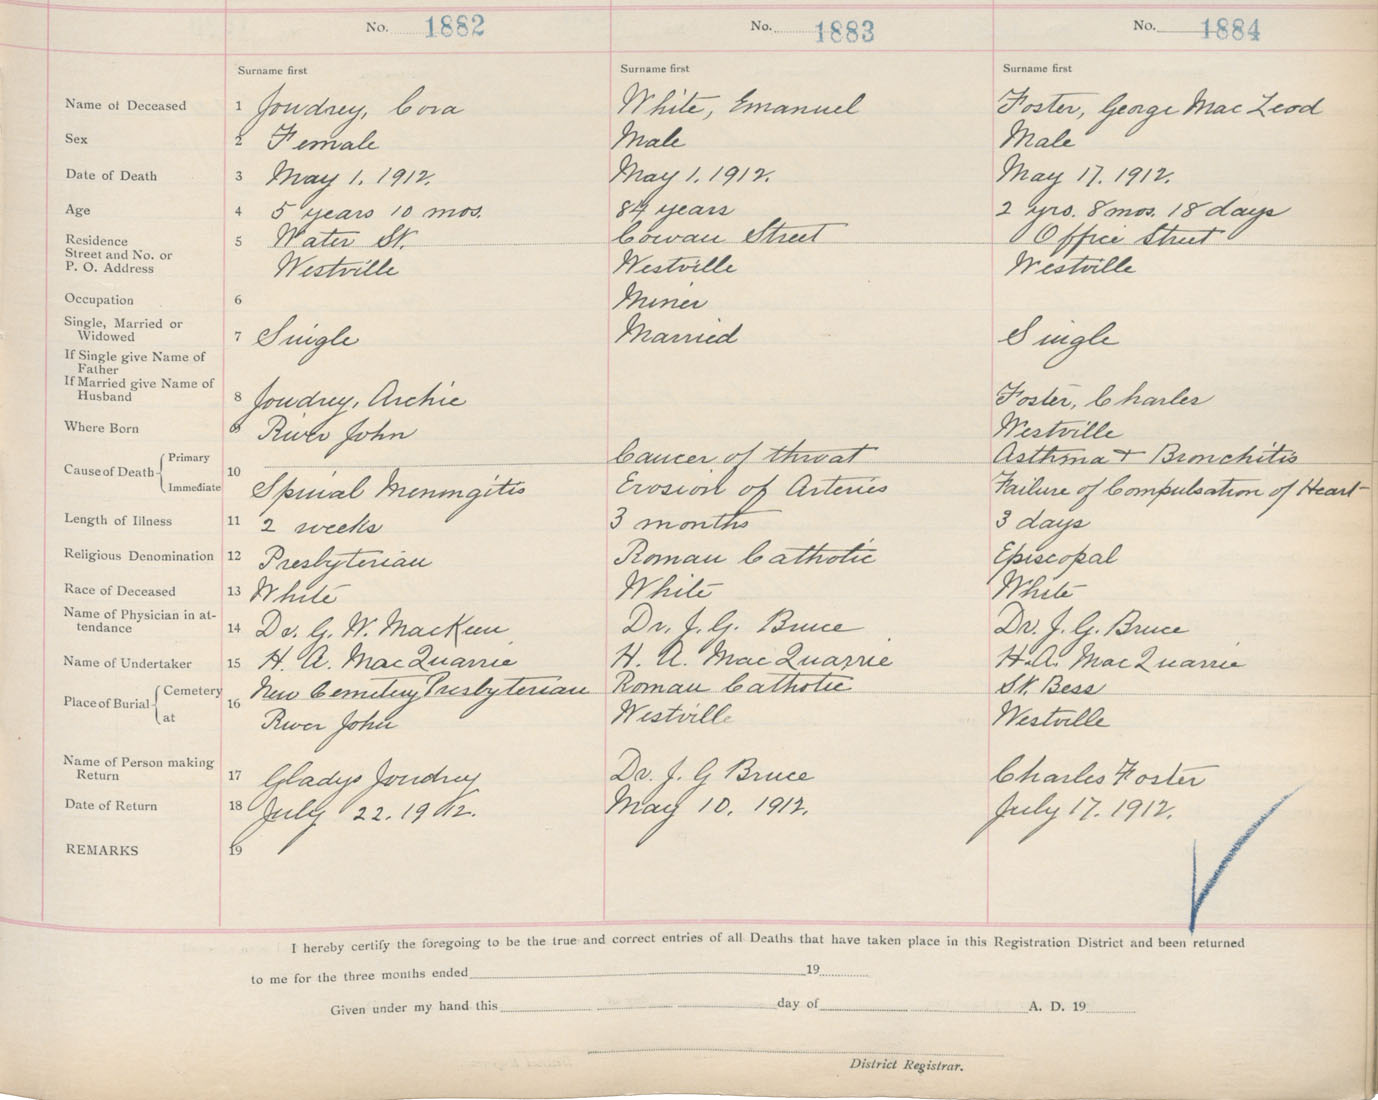 No. 1882 No. 1883 No. 1884
Surname first Surname first Surname first
Name of Deceased 1 Joudrey, Cora White, Emanuel Foster, George MacLeod
Sex 2 Female Male Male
Date of Death 3 May 1. 1912. May 1. 1912. May 17. 1912.
Age 4 5 years 10 mos. 84 years 2 yrs. 8 mos. 18 days
Residence 5 Water St. Cowan Street Office Street
Street and No. or
P. O. Address Westville Westville Westville
Occupation 6 Miner
Single, Married or
Widowed 7 Single Married Single
If Single give Name of
Father
If Married give Name of
Husband 8 Joudrey, Archie Foster, Charles
Where Born 9 River John Westville
Cause of Death Primary 10 Cancer of throat Asthma + Bronchitis
Immediate Spinal Menongitis Erosion of Arteries Failure of Compulsation of Heart
Length of Illness 11 2 weeks 3 months 3 days
Religious Denomination 12 Presbyterian Roman Catholic Episcopal
Race of Deceased 13 White White White
Name of Physician in at-
tendance 14 Dr. G. W. MacKeen Dr. J. G. Bruce Dr. J. G. Bruce
Name of Undertaker 15 H. A. MacQuarrie H. A. MacQuarrie H. A. MacQuarrie
Place of Burial Cemetery 16 New Cemetery Presbyterian Roman Catholic St. Bess
at River John Westville Westville
Name of Person making
Return 17 Gladys Joudrey Dr. J. G Bruce Charles Foster
Date of Return 18 July 22. 1912. May 10. 1912. July 17. 1912.
REMARKS 19
I hereby certify the foregoing to be the true and correct entries of all Deaths that have taken place in this Registration District and been returned
to me for the three months ended 19
Given under my hand this day of A. D. 19
District Registrar.